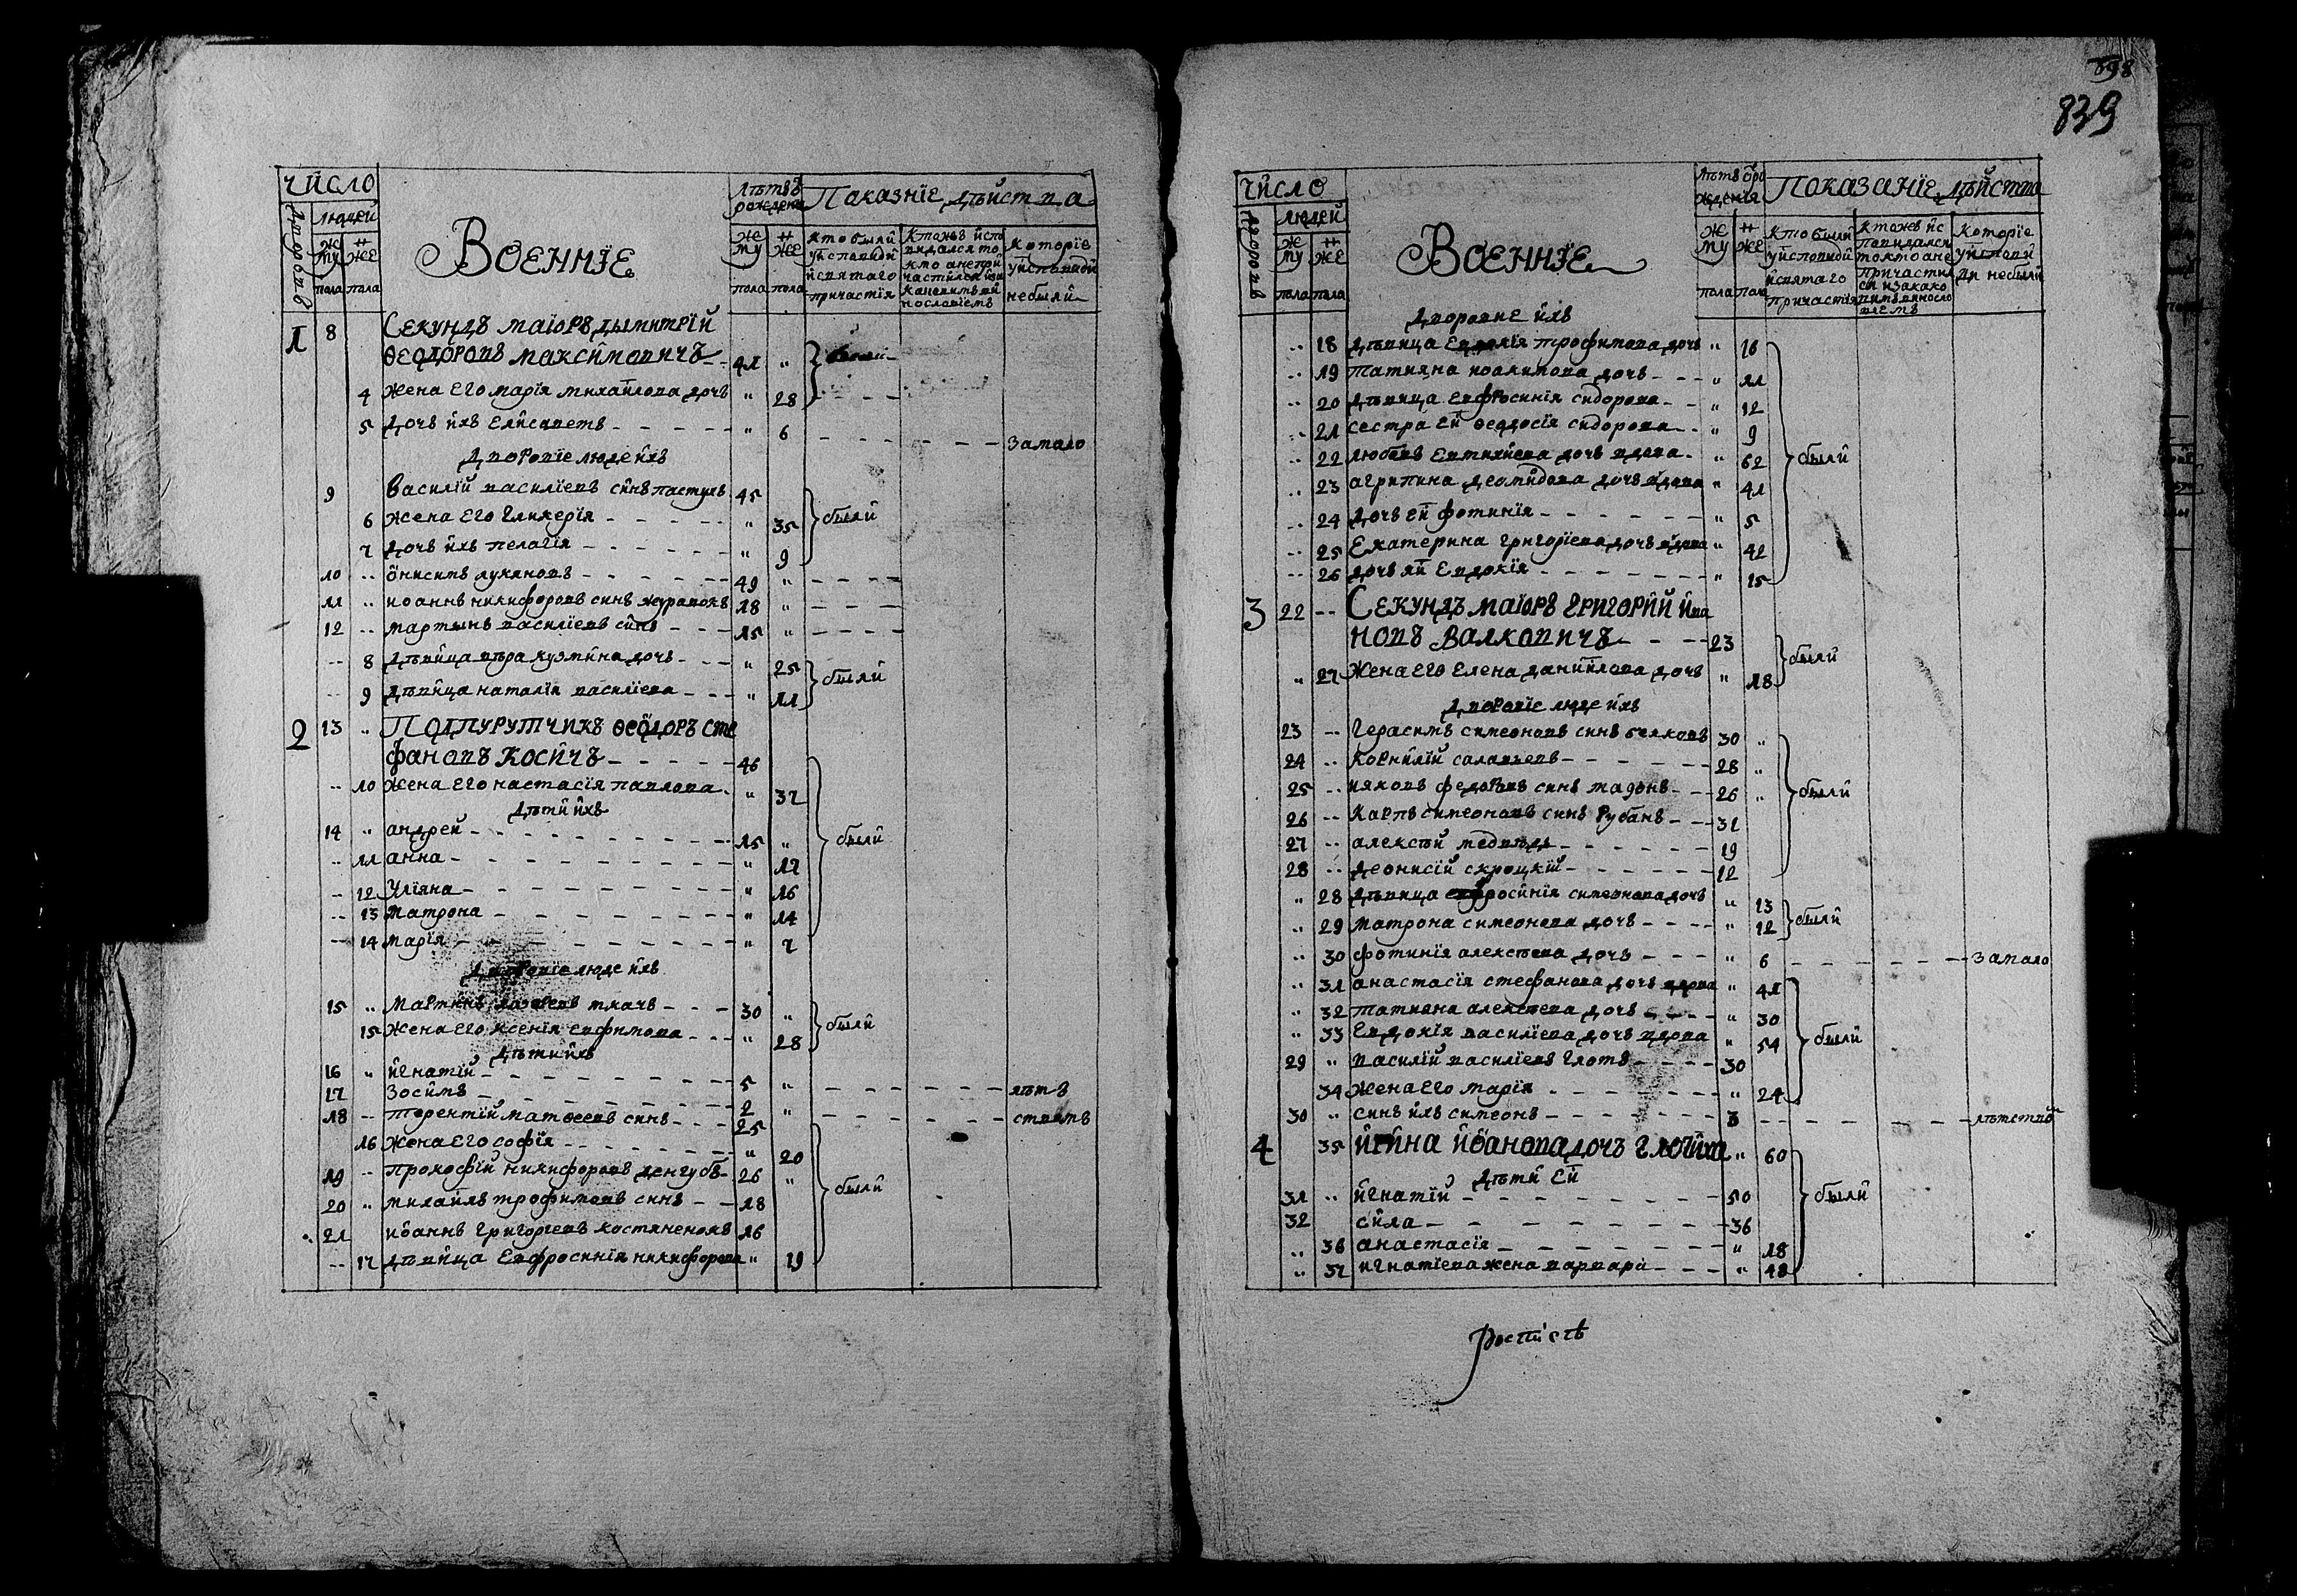 898
839
Число
Дворовъ
людей
му жес пола
жен пола
Военнїе
лѣтъ ѿ рождения
му жес пола
жен пола
Показнїе дѣйства
кто были у исповѣди и святаго причастїя
Ктожъ исповѣдался токмо а не причастился
которїе у исповѣди не были
1 8 Секундъ маїоръ Дымитрїй
Ѳеодоровъ Максимовичъ 41 " были
4 жена его марїя михайлова дочь " 28
5 дочь ихъ Елисаветъ " 6 замало
Дворовїе люде ихъ
9 Василїй василїевъ синъ пастухъ 45
6 жена его Гликерїя " 35 были
7 дочь ихъ пелагїя " 9
10 .. Онисимъ лукяновъ 49 "
11 .. иоаннъ никифоровъ синъ 18 "
12 .. мартынъ василїевъ синъ 15 "
.. 8 дѣвица вѣра кузмина дочь " 25
.. 9 дѣвица наталїя василїева " 11 были
2 13 " Подпурутчикъ Ѳеодоръ Сте
фановъ Косичъ 46
.. 10 жена его настасїя павлова " 37
дѣти ихъ
14 " андрей 15 " были
.. 11 анна " 17
.. 12 Улїяна " 16
.. 13 Матрона " 14
.. 14 марїя " 7
Дворовїе люде ихъ
15 " Мартинъ ткачъ 30 "
15 жена его ксенїя евфимова " 28 были
дѣти ихъ
16 " игнатїй 5 " лѣтъ
17 Зосимъ 2 " ствомъ
18 .. терентїй матѳеевъ синъ 25
16 жена его софїя " 20
19 .. прокофїй никифоровъ денгубъ 26 "
20 " михаилъ трофимовъ синъ 18 были
21 иоаннъ григорїевъ костяненокъ 16
.. 17 дѣвица Евфросинїя никифорова " 19
Число
Дворовъ
людей
му жес пола
жен пола
Военнїе
лѣтъ ѿ рождения
му жес пола
жен пола
Показанїе дѣйства
кто были у исповѣди и святаго причастїя
Ктожъ исповидался токмо а не причастился
Которїе у исповиди не были
Дворовие ихъ
.. 18 дѣвица Евдокїя трофимова дочь " 16
.. 19 татияна иоакимова дочь " 11
.. 20 дѣвица Евфросинїя сидорова " 12
.. 21 сестра ей ѳеодосїя сидорова " 9
.. 22 любовъ Евтихиева дочь вдова " 62 были
.. 23 агрипина деомидова дочь вдова " 41
.. 24 дочь ей фотинїя " 5
.. 25 Екатерина григорїева дочь вдова " 42
.. 26 дочь ей Евдокїя " 15
3 22 .. Секундъ маїоръ Григорий Ива
новъ Валковичъ 23
" 27 Жена его Елена даниилова дочь " 18 были
Дворовїе люде ихъ
23 .. Герасимъ симеоновъ синъ белковъ 30 "
24 .. Корнилїй 28 "
25 .. ияковъ федоровъ синъ 26 " были
26 .. Карпъ симеоновъ синъ Рубанъ 31
27 .. алексѣй медвѣдь 19
28 .. деонисїй скроцкїй 12
" 28 дѣвица евфросинїя симеонова дочь " 13
.. 29 матрона симеонова дочь " 12 были
.. 30 фотинїя алексѣева дочь " 6 замало
.. 31 анастасїя стефанова дочь вдова " 41
" 32 татияна алексѣева дочь " 30
" 33 Евдокїя василїева дочь вдова " 54 были
29 " василїй василїевъ Глотъ 30
34 жена его марїя " 24
30 " синъ ихъ симеонъ 3 лѣтствомъ
4 35 Ирина Иоанова дочъ Глотиха " 60
дѣти ей
31 " игнатїй 50 были
32 сила 36
.. 36 анастасїя " 18
" 37 игнатїева жена варвара " 48
роспись